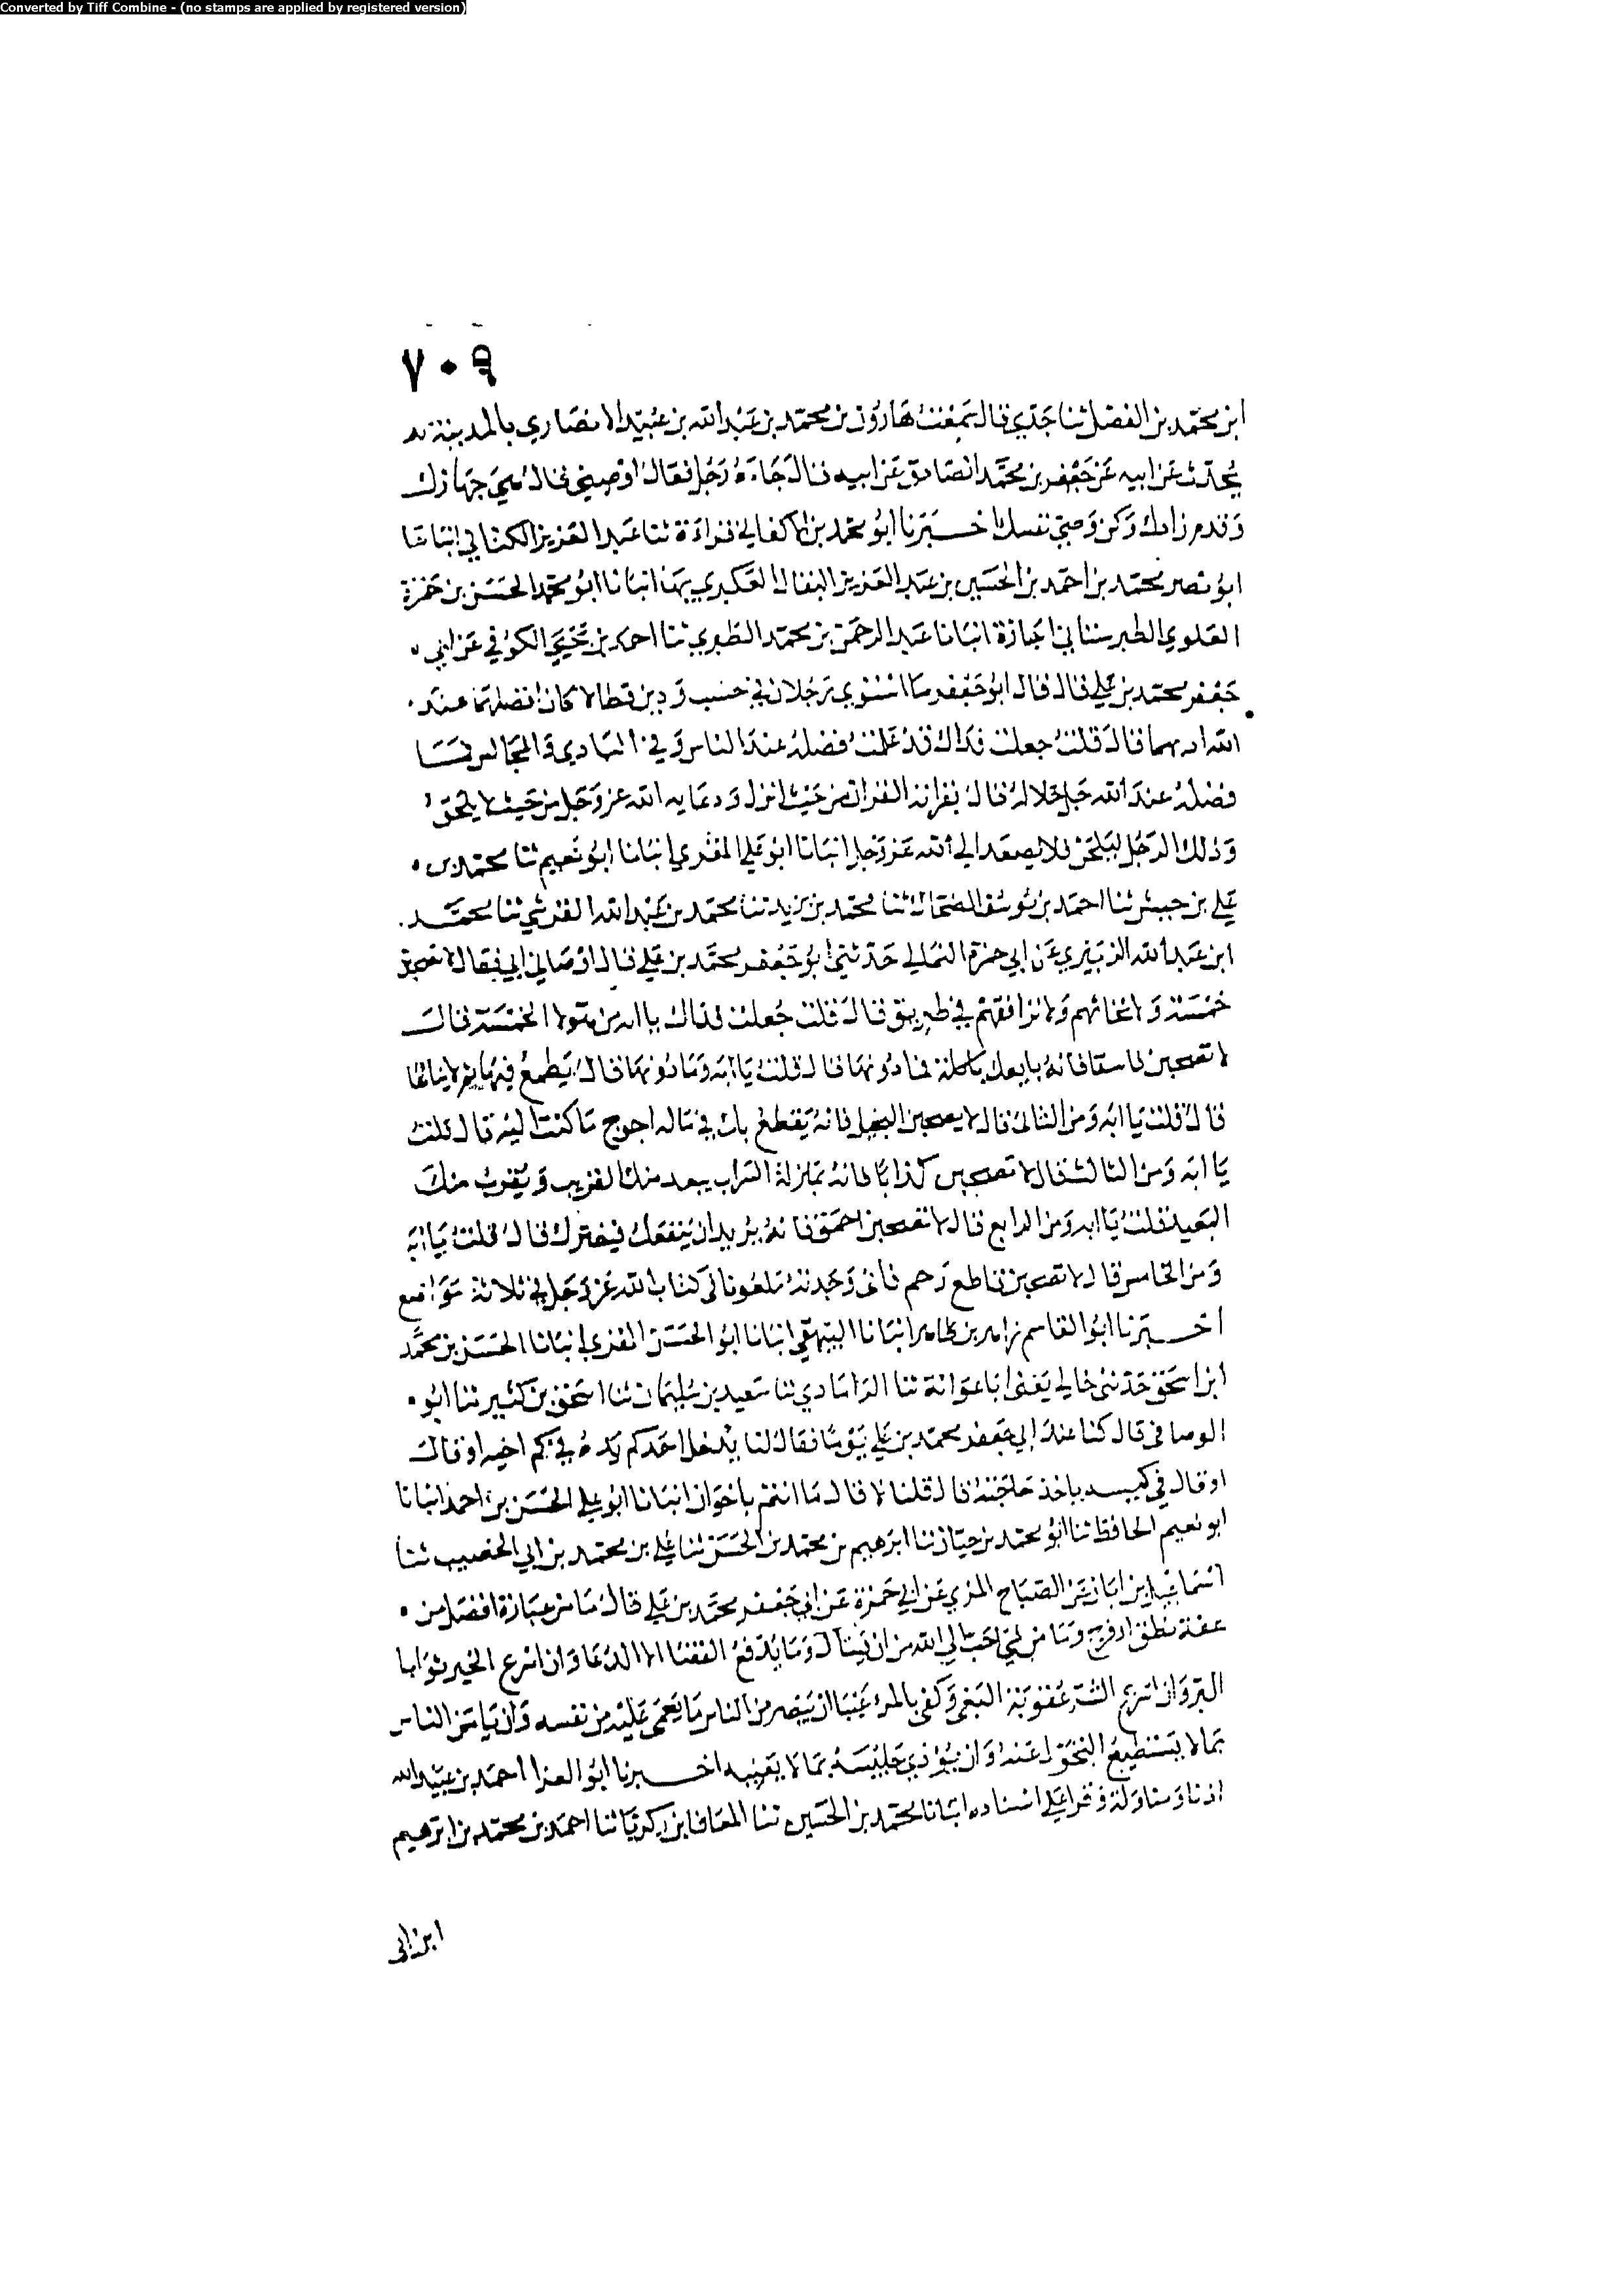 Converted by Tiff Combine - (no stamps are applied by registered version)
٧٠٩
ابن محمد بن الفضل ثنا جدي قال سمعت هارون بن محمد بن عبد الله بن عبيد الانصاري بالمدينة
يحدث عن ابيه عن جعفر بن محمد الصادق عن ابيه قال جاءه رجل فقال اوصني قال هيئ جهازك
وقدم زادك وكن وصي نفسك اخبرنا ابو محمد بن الاكفاني قراءة ثنا عبد العزيز الكتاني انبانا
ابو نصر محمد بن احمد بن الحسين بن عبد العزيز البقال العكبري بها انبانا ابو محمد الحسن بن حمزة
العلوي الطبرستاني اجازة انبانا عبد الرحمن بن محمد الطبري ثنا احمد بن يحيى الكوفي عن ابي
جعفر محمد بن علي قال قال ابو جعفر ما استوى رجلان في حسب ودين قط الا كان افضلهما عند
الله ادبهما قال قلت جعلت فداك قد علمت فضله عند الناس وفي النادي والمجالس فما
فضله عند الله جل جلاله قال بقراته القران من حيث انزل ودعايه الله عز وجل من حيث لا يلحن
وذلك الرجل ليلحن فلا يصعد الى الله عز وجل انبانا ابو علي المقري انبانا ابو نعيم ثنا محمد بن
علي بن حبيش ثنا احمد بن يوسف الضحاك ثنا محمد بن يزيد ثنا محمد بن عبد الله القرشي ثنا محمد
ابن عبد الله الزبيري عن ابي حمزة الثمالي حدثني ابو جعفر محمد بن علي قال اوصاني ابي فقال لا تصحبن
خمسة ولا تحادثهم ولا ترافقهم في طريق قال قلت جعلت فداك يا ابه من هولا الخمسة قال
لا تصحبن فاسقا فانه بايعك باكلة فما دونها قال قلت يا ابه وما دونها قال يطمع فيها ثم لا ينالها
قال قلت يا ابه ومن الثاني قال لا تصحبن البخيل فانه يقطع بك في ماله احوج ما كنت اليه قال قلت
يا ابه ومن الثالث قال لا تصحبن كذابا فانه بمنزلة السراب يبعد منك القريب ويقرب منك
البعيد قلت يا ابه ومن الرابع قال لا تصحبن احمق فانه يريد ان ينفعك فيضرك قال قلت يا ابه
ومن الخامس قال لا تصحبن قاطع رحم فاني وجدته ملعونا في كتاب الله عز وجل في ثلاثة مواضع
اخبرنا ابو القاسم زاهر بن طاهر انبانا البيهقي انبانا ابو الحسن المقري انبانا الحسن بن محمد
ابن اسحق حدثني خالي يعني ابا عوانة ثنا الرمادي ثنا سعيد بن سليمان ثنا اسحق بن كثير ثنا ابو
الوصافي قال كنا عند ابي جعفر محمد بن علي يوما فقال لنا يدخل احدكم يده في كم اخيه او قال
او قال في كيسه ياخذ حاجته قال قلنا لا قال ما انتم باخوان انبانا ابو علي الحسن بن احمد انبانا
ابو نعيم الحافظ ثنا ابو محمد بن حيان ثنا ابرهيم بن محمد بن الحسن ثنا علي بن محمد بن ابي الخصيب ثنا
اسماعيل بن ابان عن الصباح المزي عن ابي حمزة عن ابي جعفر محمد بن علي قال ما من عبادة افضل من
عفة بطن او فرج وما من شي احب الى الله من ان يسال وما يدفع القضا الا الدعا وان اسرع الخير ثوابا
البر وان اسرع الشر عقوبة البغي وكفى بالمرء عيبا ان يبصر من الناس ما يعمى عليه من نفسه وان يامر الناس
بما لا يستطيع التحول عنه وان يؤذي جليسه بما لا يعنيه اخبرنا ابو العز احمد بن عبيد الله
اذنا ومناولة وقرا علي اسناده انبانا محمد بن الحسين ثنا المعافا بن زكريا ثنا احمد بن محمد بن ابرهيم
ابن ابي